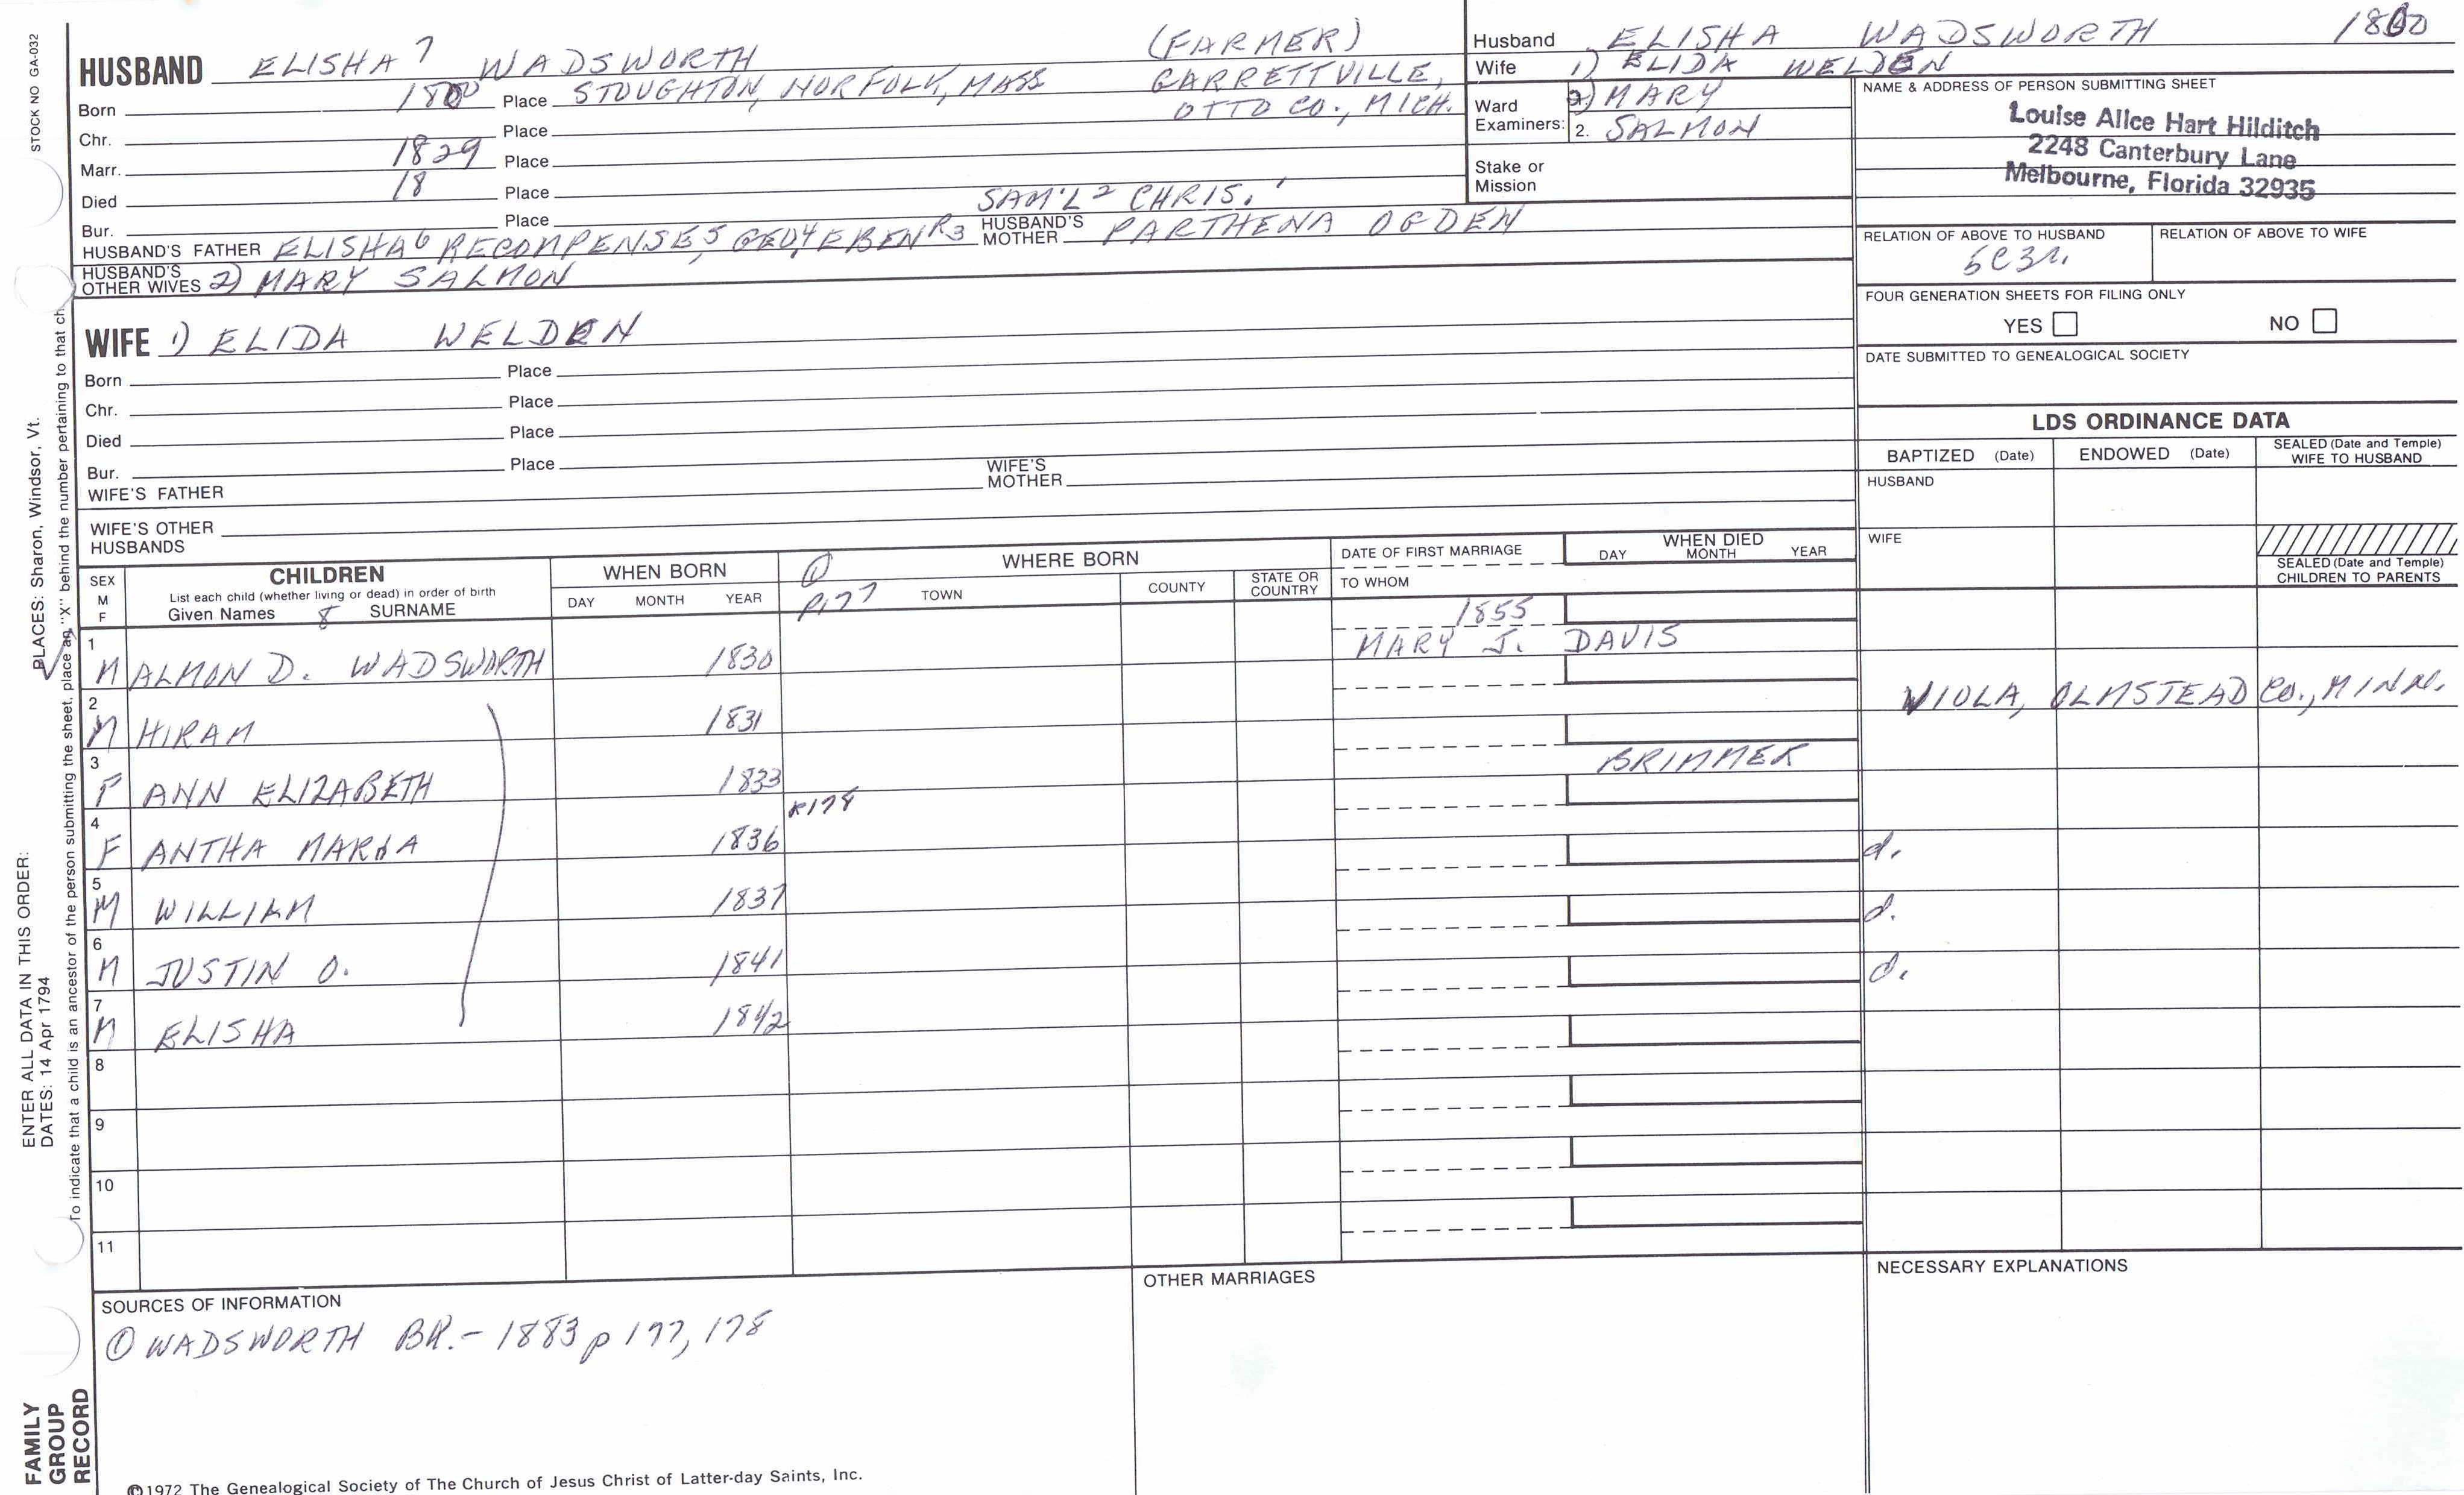 STOCK NO GA-032
PLACES: Sharon, Windsor, Vt.
ENTER ALL DATA IN THIS ORDER:
DATES: 14 Apr 1794
To indicate that a child is an ancestor of the person submitting the sheet, place an "X" behind the number pertaining to that ch
FAMILY
GROUP
RECORD
HUSBAND ELISHA 7 WADSWORTH (FARMER)
Born 1800 Place STOUGHTON, NORFOLK, MASS GARRETTVILLE,
OTTO CO., MICH.
Chr. Place
Marr. 1829 Place
Died 18 Place
Bur. Place SAM'L 2 CHRIS. 1
HUSBAND'S FATHER ELISHA 6 RECOMPENSE 5, GEO 4, EBEN R 3 HUSBAND'S MOTHER PARTHENA OGDEN
HUSBAND'S OTHER WIVES 2) MARY SALMON
WIFE 1) ELIDA WELDEN
Born Place
Chr. Place
Died Place
Bur. Place
WIFE'S FATHER WIFE'S MOTHER
WIFE'S OTHER HUSBANDS
Husband ELISHA WADSWORTH 1800
Wife 1) ELIDA WELDEN
Ward Examiners: 2) MARY
2. SALMON
Stake or Mission
NAME & ADDRESS OF PERSON SUBMITTING SHEET
Louise Alice Hart Hilditch
2248 Canterbury Lane
Melbourne, Florida 32935
RELATION OF ABOVE TO HUSBAND RELATION OF ABOVE TO WIFE
5C3r.
FOUR GENERATION SHEETS FOR FILING ONLY
YES NO
DATE SUBMITTED TO GENEALOGICAL SOCIETY
LDS ORDINANCE DATA
BAPTIZED (Date) ENDOWED (Date) SEALED (Date and Temple) WIFE TO HUSBAND
HUSBAND
WIFE
SEALED (Date and Temple) CHILDREN TO PARENTS
SEX M F CHILDREN WHEN BORN ① WHERE BORN DATE OF FIRST MARRIAGE WHEN DIED
List each child (whether living or dead) in order of birth
Given Names 8 SURNAME DAY MONTH YEAR P177 TOWN COUNTY STATE OR COUNTRY TO WHOM DAY MONTH YEAR
1 M ALMON D. WADSWORTH 1830 1855
MARY J. DAVIS
2 M HIRAM 1831 VIOLA, OLMSTEAD CO., MINN.
3 F ANN ELIZABETH 1833 BRIMMER
P178
4 F ANTHA MARIA 1836 d.
5 M WILLIAM 1837 d.
6 M JUSTIN O. 1841 d.
7 M ELISHA 1842
8
9
10
11
SOURCES OF INFORMATION
① WADSWORTH BK.- 1883 p 177, 178
OTHER MARRIAGES
NECESSARY EXPLANATIONS
©1972 The Genealogical Society of The Church of Jesus Christ of Latter-day Saints, Inc.